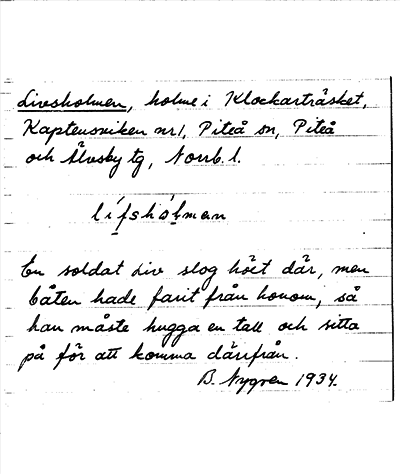 Livsholmen, holme i Klockarträsket,
Kaptensviken nr 1, Piteå sn, Piteå
och Älvsby tg, Norrb. l.
lífshòlmen
En soldat Liv slog höet där, men
båten hade farit från honom, så
han måste hugga en tall och sitta
på för att komma därifrån.
B. Nygren 1934.